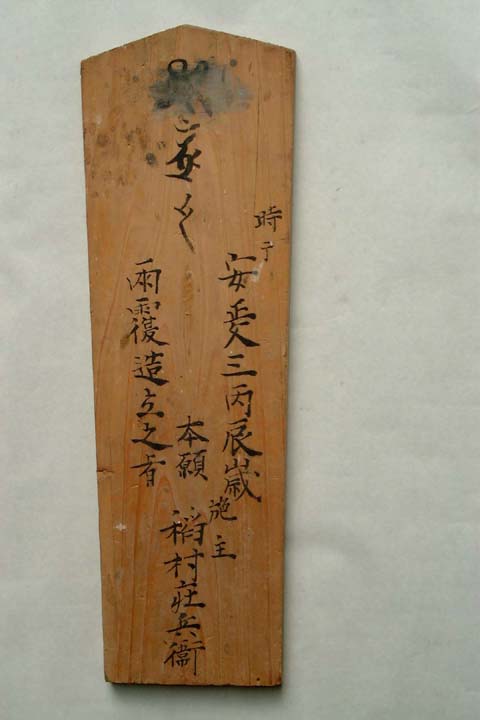 時于
安政三丙辰歳
施主
本願
稲村庄兵衛
雨覆造立之者